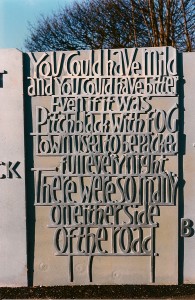 T
CK
YOU COULD HAVE MILD
AND YOU COULD HAVE BITTER
EVEN IF IT WAS
PITCHBLACK WITH FOG
TOWN USED TO BE PACKED
FULL EVERY NIGHT
THERE WERE SO MANY
ON EITHER SIDE
OF THE ROAD.
B